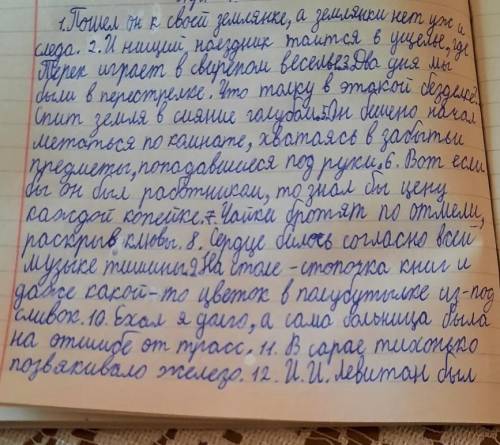 1. Пошел он к своей землянке, а землянки нет уж и
следа. 2. И нищий, наездник таится в ущелье, где
Терек играет в свирепом веселье. 3. Два дня мы
были в перестрелке. Что толку в этакой безделке.
Спит земля в сияние голубом. 5. Он бешено начал
метаться по комнате, хватаясь в забытьи
предметы, попадавшиеся под руки. 6. Вот если
бы он был работником, то знал бы цену
каждой копейке. 7. Чайки бротят по отмели,
раскрыв клювы. 8. Сердце билось согласно всей
музыке тишины. 9. На столе - стопозка книг и
даже какой-то цветок в полубутылке из-под
сливок. 10. Ехал я долго, а сама больница была
на отшибе от трасс. 11. В сарае тихонько
позвякивало железо. 12. И. И. Левитан был